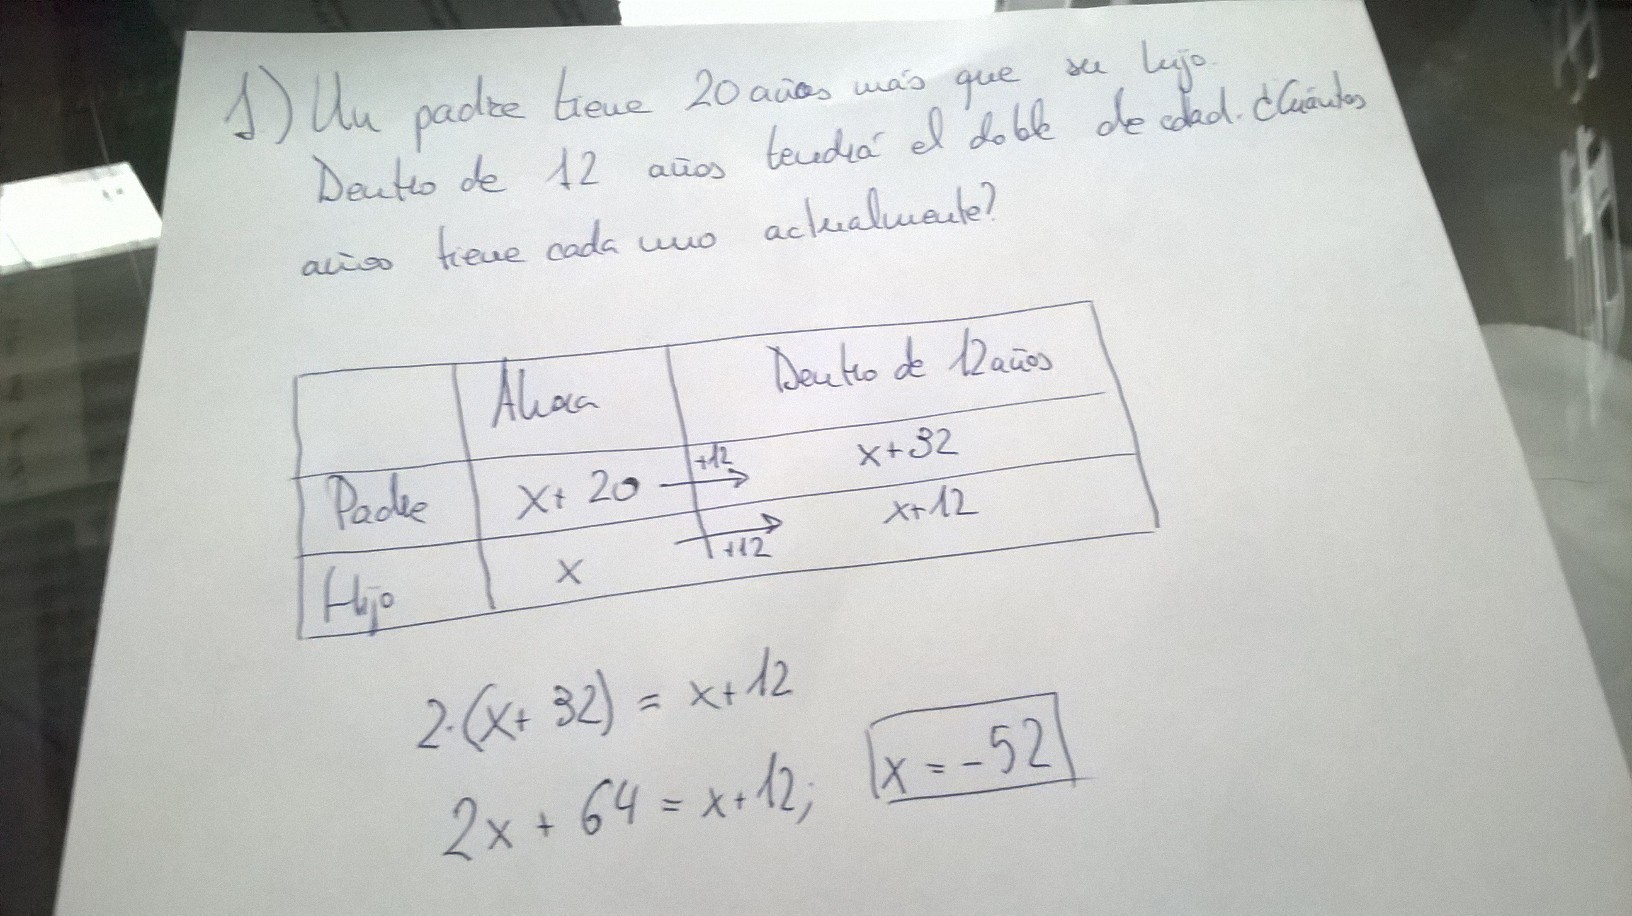 1) Un padre tiene 20 años más que su hijo.
Dentro de 12 años tendrá el doble de edad. ¿Cuántos
años tiene cada uno actualmente?
Ahora Dentro de 12 años
Padre x+ 20 +12 x+32
Hijo x +12 x+12
2·(x+ 32) = x+12
2x + 64 = x+12; x = -52